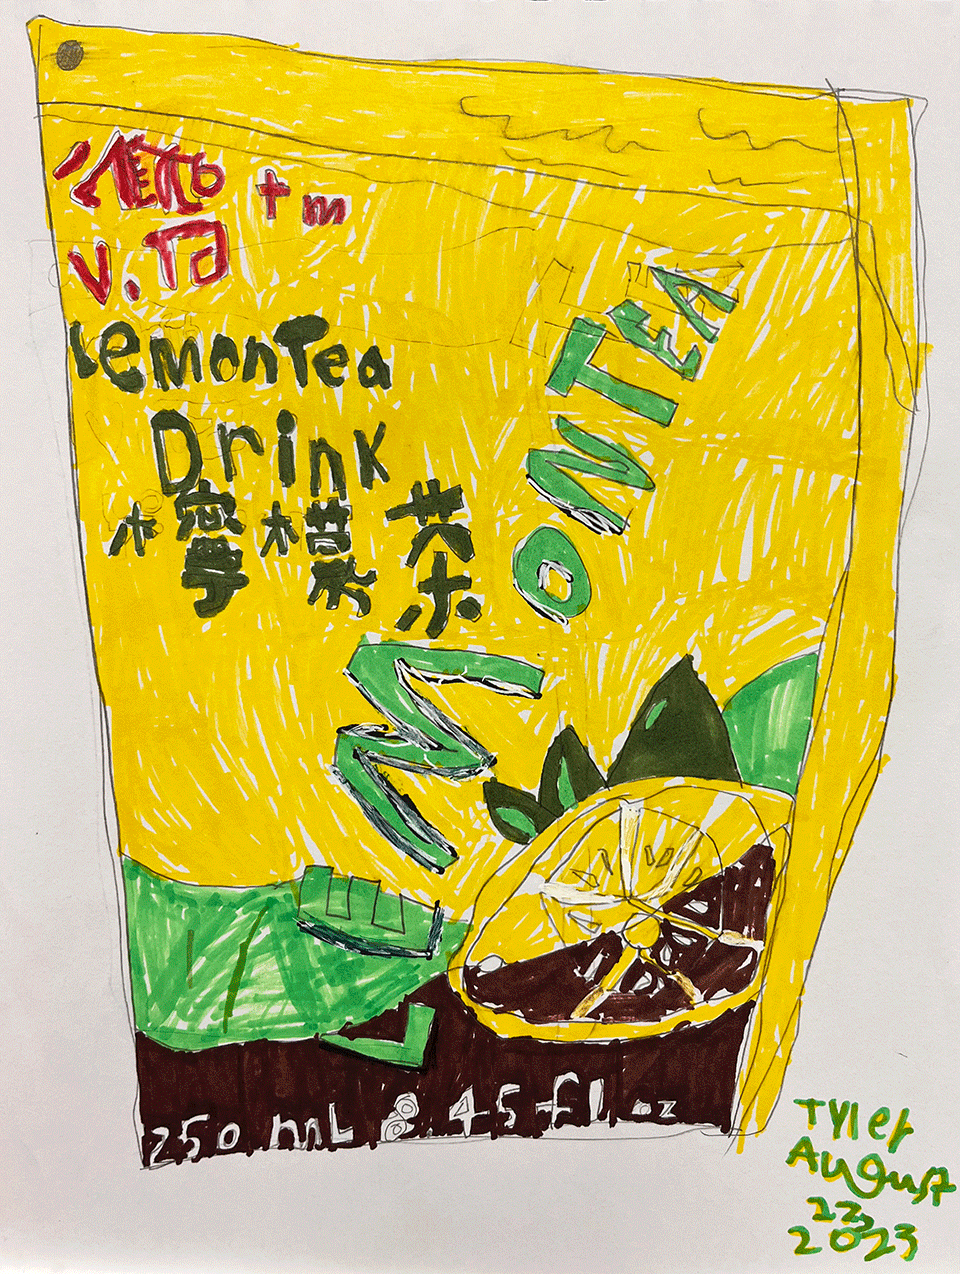 tm
LemonTea
Drink
檸檬茶
LEMONTEA
250 mL 8.45 fl oz
Tyler
August
22,
2023